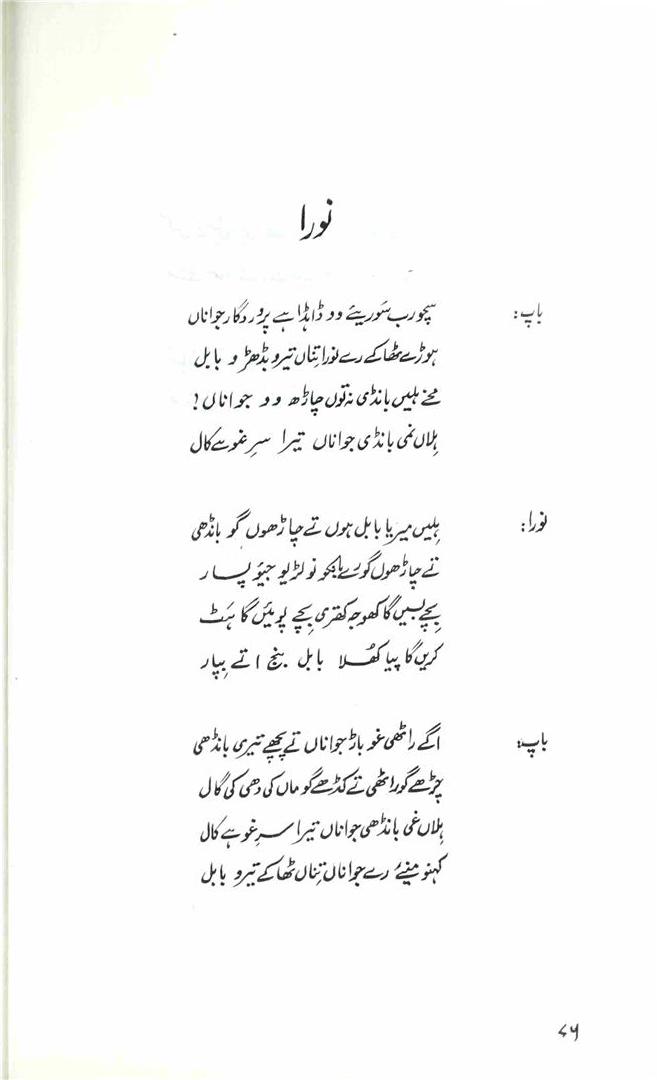 نورا
باپ: سچو رب سَوریئے وو ڈاہڈا ہے پرورَدگار جواناں
ہوڑے ٹھاکے رے نورا تِناں تیرو بڈھڑو بابل
مخے ہلیں بانڈی نہ توں چاڑھ وو جواناں!
ہِلاں نمی بانڈی جواناں تیرا سرِ غو ہے کال
نورا: ہلیں میریا بابل ہوں تے چاڑھوں گو بانڈھی
تے چاڑھوں گورے بانکو نولڑیو جیئو پسار
بِچے بسیں گا کھوجہ کھتری بِچے پومئیں گا ہَٹ
کریں گا پیا کھُلا بابل بنج اتے بپار
باپ: اگے راٹھی غو باڑ جواناں تے پچھے تیری بانڈھی
چڑھے گو راٹھی تے کڈھے گو ماں کی دھی کی گال
ہِلاں غی بانڈھی جواناں تیرا سرِ غو ہے کال
کہنو مینئے رے جواناں تِناں ٹھاکے تیرو بابل
۷۶